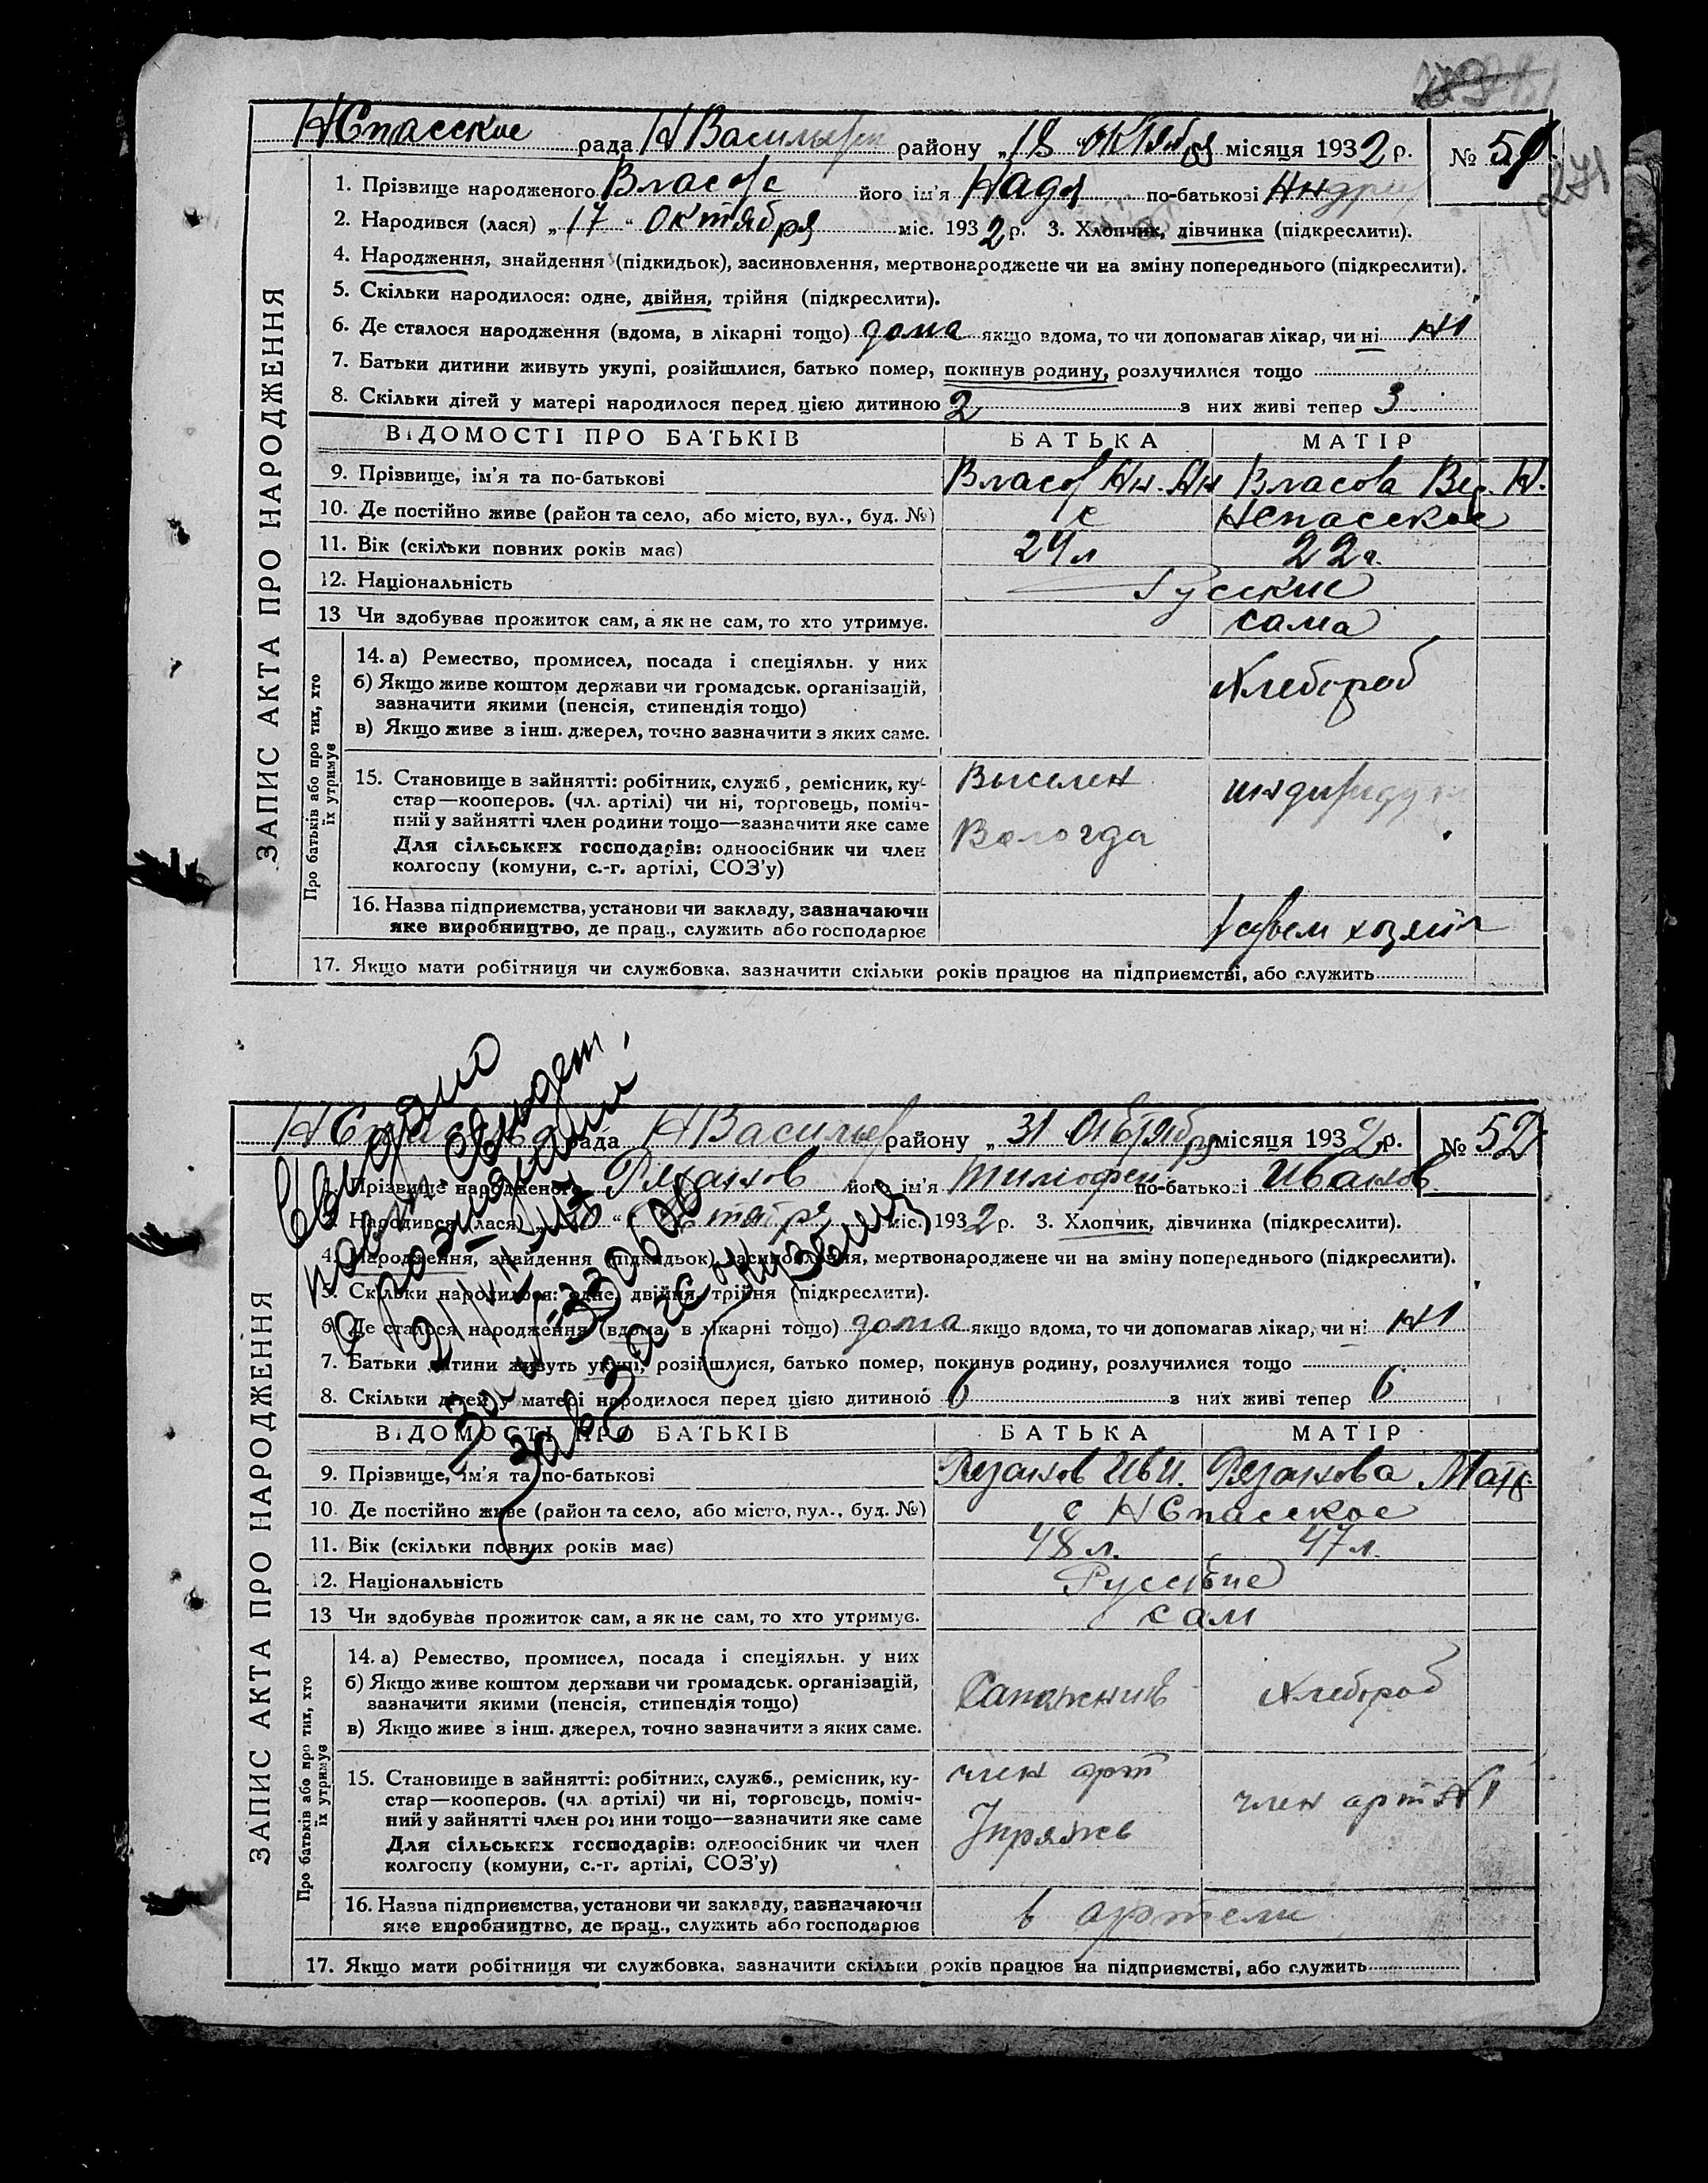 НСпасское рада Н Василье району „18 “ октября місяця 1932 р. № 51
271
ЗАПИС АКТА ПРО НАРОДЖЕННЯ
1. Прізвище народженого Власова його ім'я Надя по-батькові Андри
2. Народився (лася) „17 “ октября міс. 1932 р. 3. Хлопчик, дівчинка (підкреслити).
4. Народження, знайдення (підкидьок), засиновлення, мертвонароджене чи на зміну попереднього (підкреслити).
5. Скільки народилося: одне, двійня, трійня (підкреслити).
6. Де сталося народження (вдома, в лікарні тощо) дома якщо вдома, то чи допомагав лікар, чи ні НІ
7. Батьки дитини живуть укупі, розійшлися, батько помер, покинув родину, розлучилися тощо
8. Скільки дітей у матері народилося перед цією дитиною 2 з них живі тепер 3
ВІДОМОСТІ ПРО БАТЬКІВ БАТЬКА МАТІР
9. Прізвище, ім'я та по-батькові Власов Ан. Ан Власова Вер. Н.
10. Де постійно живе (район та село, або місто, вул., буд. №) с Нспасское
11. Вік (скільки повних років має) 29 л 22 г.
12. Національність Русские
13 Чи здобуває прожиток сам, а як не сам, то хто утримує. сама
Про батьків або про тих, хто їх утримує
14. а) Ремество, промисел, посада і спеціяльн. у них Хлебороб
б) Якщо живе коштом держави чи громадськ. організацій,
зазначити якими (пенсія, стипендія тощо)
в) Якщо живе з інш. джерел, точно зазначити з яких саме.
15. Становище в зайнятті: робітник, служб., ремісник, ку- Выселен
стар—кооперов. (чл. артілі) чи ні, торговець, поміч-
ний у зайнятті член родини тощо—зазначити яке саме Вологда
Для сільських господарів: одноосібник чи член
колгоспу (комуни, с.-г. артілі, СОЗ'у)
16. Назва підприємства, установи чи закладу, зазначаючи
яке виробництво, де прац., служить або господарює
17. Якщо мати робітниця чи службовка, зазначити скільки років працює на підприємстві, або служить
НСпасское рада Н Васильев району „31 октября місяця 1932 р. № 52
ЗАПИС АКТА ПРО НАРОДЖЕННЯ
Прізвище народженого Рязанов його ім'я Тимофей по-батькові Иванов
Народився (лася) міс. 1932 р. 3. Хлопчик, дівчинка (підкреслити).
4. Народження, знайдення (підкидьок), засиновлення, мертвонароджене чи на зміну попереднього (підкреслити).
5. Скільки народилося: одне, двійня, трійня (підкреслити).
6. Де сталося народження (вдома, в лікарні тощо) дома якщо вдома, то чи допомагав лікар, чи ні НІ
7. Батьки дитини живуть укупі, розійшлися, батько помер, покинув родину, розлучилися тощо
8. Скільки дітей у матері народилося перед цією дитиною 6 з них живі тепер 6
ВІДОМОСТІ ПРО БАТЬКІВ БАТЬКА МАТІР
9. Прізвище, ім'я та по-батькові Рязанов Ив И. Рязанова
10. Де постійно живе (район та село, або місто, вул., буд. №) с НСпасское
11. Вік (скільки повних років має) 48 л. 47 л.
12. Національність Русские
13 Чи здобуває прожиток сам, а як не сам, то хто утримує. сам
Про батьків або про тих, хто їх утримує
14. а) Ремество, промисел, посада і спеціяльн. у них Сапожник Хлебороб
б) Якщо живе коштом держави чи громадськ. організацій,
зазначити якими (пенсія, стипендія тощо)
в) Якщо живе з інш. джерел, точно зазначити з яких саме.
15. Становище в зайнятті: робітник, служб., ремісник, ку- член арт
стар—кооперов. (чл. артілі) чи ні, торговець, поміч- член арт
ний у зайнятті член родини тощо—зазначити яке саме
Для сільських господарів: одноосібник чи член
колгоспу (комуни, с.-г. артілі, СОЗ'у)
16. Назва підприємства, установи чи закладу, зазначаючи в артели
яке виробництво, де прац., служить або господарює
17. Якщо мати робітниця чи службовка, зазначити скільки років працює на підприємстві, або служить